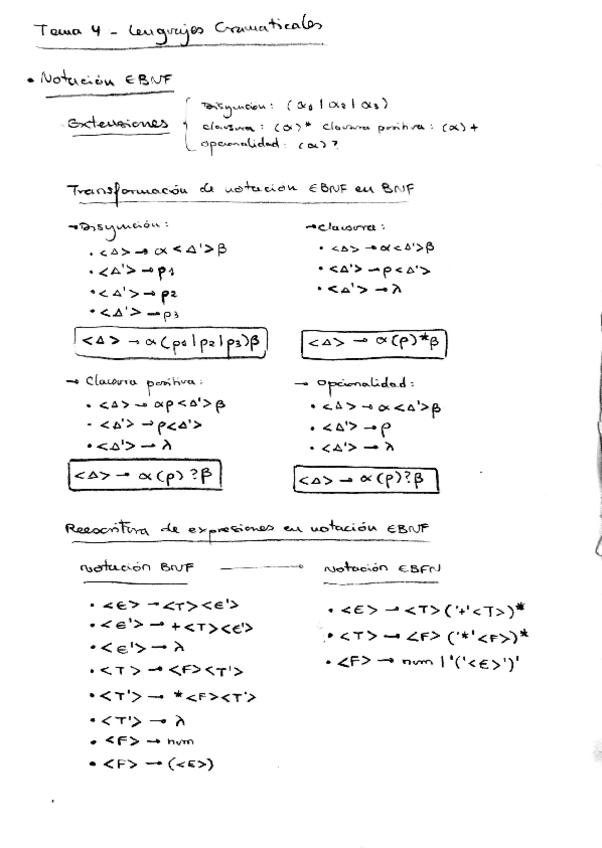 Tema 4 - Lenguajes Gramaticales
• Notación EBNF
Extensiones
Disyunción: (α1 | α2 | α3)
clausura: (α)* clausura positiva: (α)+
opcionalidad: (α)?
Transformación de notación EBNF en BNF
→ Disyunción:
• <Δ> → α<Δ'>β
• <Δ'> → ρ1
• <Δ'> → ρ2
• <Δ'> → ρ3
<Δ> → α(ρ1|ρ2|ρ3)β
→ clausura:
• <Δ> → α<Δ'>β
• <Δ'> → ρ<Δ'>
• <Δ'> → λ
<Δ> → α(ρ)*β
→ Clausura positiva:
• <Δ> → αρ<Δ'>β
• <Δ'> → ρ<Δ'>
• <Δ'> → λ
<Δ> → α(ρ)?β
→ Opcionalidad:
• <Δ> → α<Δ'>β
• <Δ'> → ρ
• <Δ'> → λ
<Δ> → α(ρ)?β
Reescritura de expresiones en notación EBNF
Notación BNF → Notación EBFN
• <E> → <T><E'>
• <E'> → +<T><E'>
• <E'> → λ
• <T> → <F><T'>
• <T'> → *<F><T'>
• <T'> → λ
• <F> → num
• <F> → (<E>)
• <E> → <T>('+'<T>)*
• <T> → <F>('*'<F>)*
• <F> → num | '('<E>')'